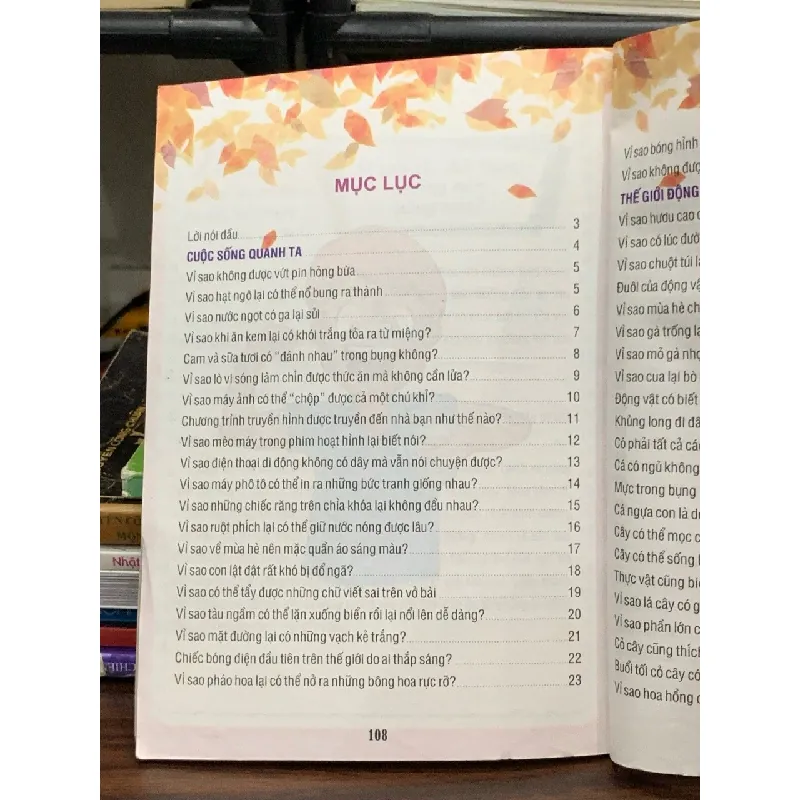 MỤC LỤC
Lời nói đầu 3
CUỘC SỐNG QUANH TA 4
Vì sao không được vứt pin hỏng bừa 5
Vì sao hạt ngô lại có thể nổ bung ra thành 5
Vì sao nước ngọt có ga lại sủi 6
Vì sao khi ăn kem lại có khói trắng tỏa ra từ miệng? 7
Cam và sữa tươi có "đánh nhau" trong bụng không? 8
Vì sao lò vi sóng làm chín được thức ăn mà không cần lửa? 9
Vì sao máy ảnh có thể "chộp" được cả một chú khỉ? 10
Chương trình truyền hình được truyền đến nhà bạn như thế nào? 11
Vì sao mèo máy trong phim hoạt hình lại biết nói? 12
Vì sao điện thoại di động không có dây mà vẫn nói chuyện được? 13
Vì sao máy phô tô có thể in ra những bức tranh giống nhau? 14
Vì sao những chiếc răng trên chìa khóa lại không đều nhau? 15
Vì sao ruột phích lại có thể giữ nước nóng được lâu? 16
Vì sao về mùa hè nên mặc quần áo sáng màu? 17
Vì sao con lật đật rất khó bị đổ ngã? 18
Vì sao có thể tẩy được những chữ viết sai trên vở bài 19
Vì sao tàu ngầm có thể lặn xuống biển rồi lại nổi lên dễ dàng? 20
Vì sao mặt đường lại có những vạch kẻ trắng? 21
Chiếc bóng điện đầu tiên trên thế giới do ai thắp sáng? 22
Vì sao pháo hoa lại có thể nở ra những bông hoa rực rỡ? 23
108
Vì sao bóng hình
Vì sao không đượ
THẾ GIỚI ĐỘNG
Vì sao hươu cao
Vì sao có lúc đườ
Vì sao chuột túi
Đuôi của động vậ
Vì sao mùa hè ch
Vì sao gà trống
Vì sao mỏ gà nhọ
Vì sao cua lại bò
Động vật có biết
Khủng long đi đâ
Có phải tất cả cá
Cá có ngủ không
Mực trong bụng
Cá ngựa con là
Cây có thể mọc
Cây có thể sống
Thực vật cũng bi
Vì sao lá cây có
Vì sao phần lớn
Cỏ cây cũng thíc
Buổi tối cỏ cây
Vì sao hoa hồng
Nhật